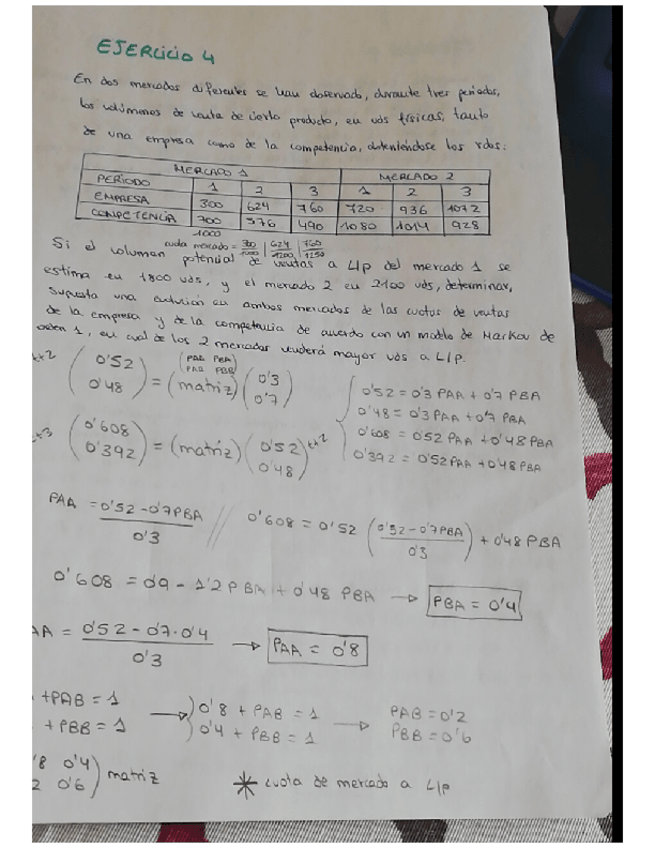 EJERCICIO 4
En dos mercados diferentes se han observado, durante tres periodos,
los volúmenes de venta de cierto producto, en uds físicas, tanto
de una empresa como de la competencia, obteniéndose los rdos:
MERCADO 1 MERCADO 2
PERIODO 1 2 3 1 2 3
EMPRESA 300 624 760 720 936 1072
COMPETENCIA 700 576 490 1080 1014 928
1000
cuota mercado = 300/1000 | 624/1200 | 760/1250
Si el volumen potencial de ventas a L/p del mercado 1 se
estima en 1800 uds, y el mercado 2 en 2100 uds, determinar,
supuesta una evolución en ambos mercados de las cuotas de ventas
de la empresa y de la competencia de acuerdo con un modelo de Markov de
orden 1, en cual de los 2 mercados venderá mayor uds a L/p.
t+2 (0'52 0'48) = (matriz) (0'3 0'7)
(PAA PBA
PAB PBB)
0'52 = 0'3 PAA + 0'7 PBA
0'48 = 0'3 PAA + 0'7 PBA
0'608 = 0'52 PAA + 0'48 PBA
0'392 = 0'52 PAA + 0'48 PBA
t+3 (0'608 0'392) = (matriz) (0'52 0'48) t+2
PAA = 0'52 - 0'7PBA / 0'3 // 0'608 = 0'52 (0'52 - 0'7PBA / 0'3) + 0'48 PBA
0'608 = 0'9 - 1'2 PBA + 0'48 PBA → PBA = 0'4
AA = 0'52 - 0'7·0'4 / 0'3 → PAA = 0'8
+PAB = 1 → 0'8 + PAB = 1 → PAB = 0'2
+ PBB = 1 0'4 + PBB = 1 PBB = 0'6
'8 0'4
2 0'6) matriz
* cuota de mercado a L/p